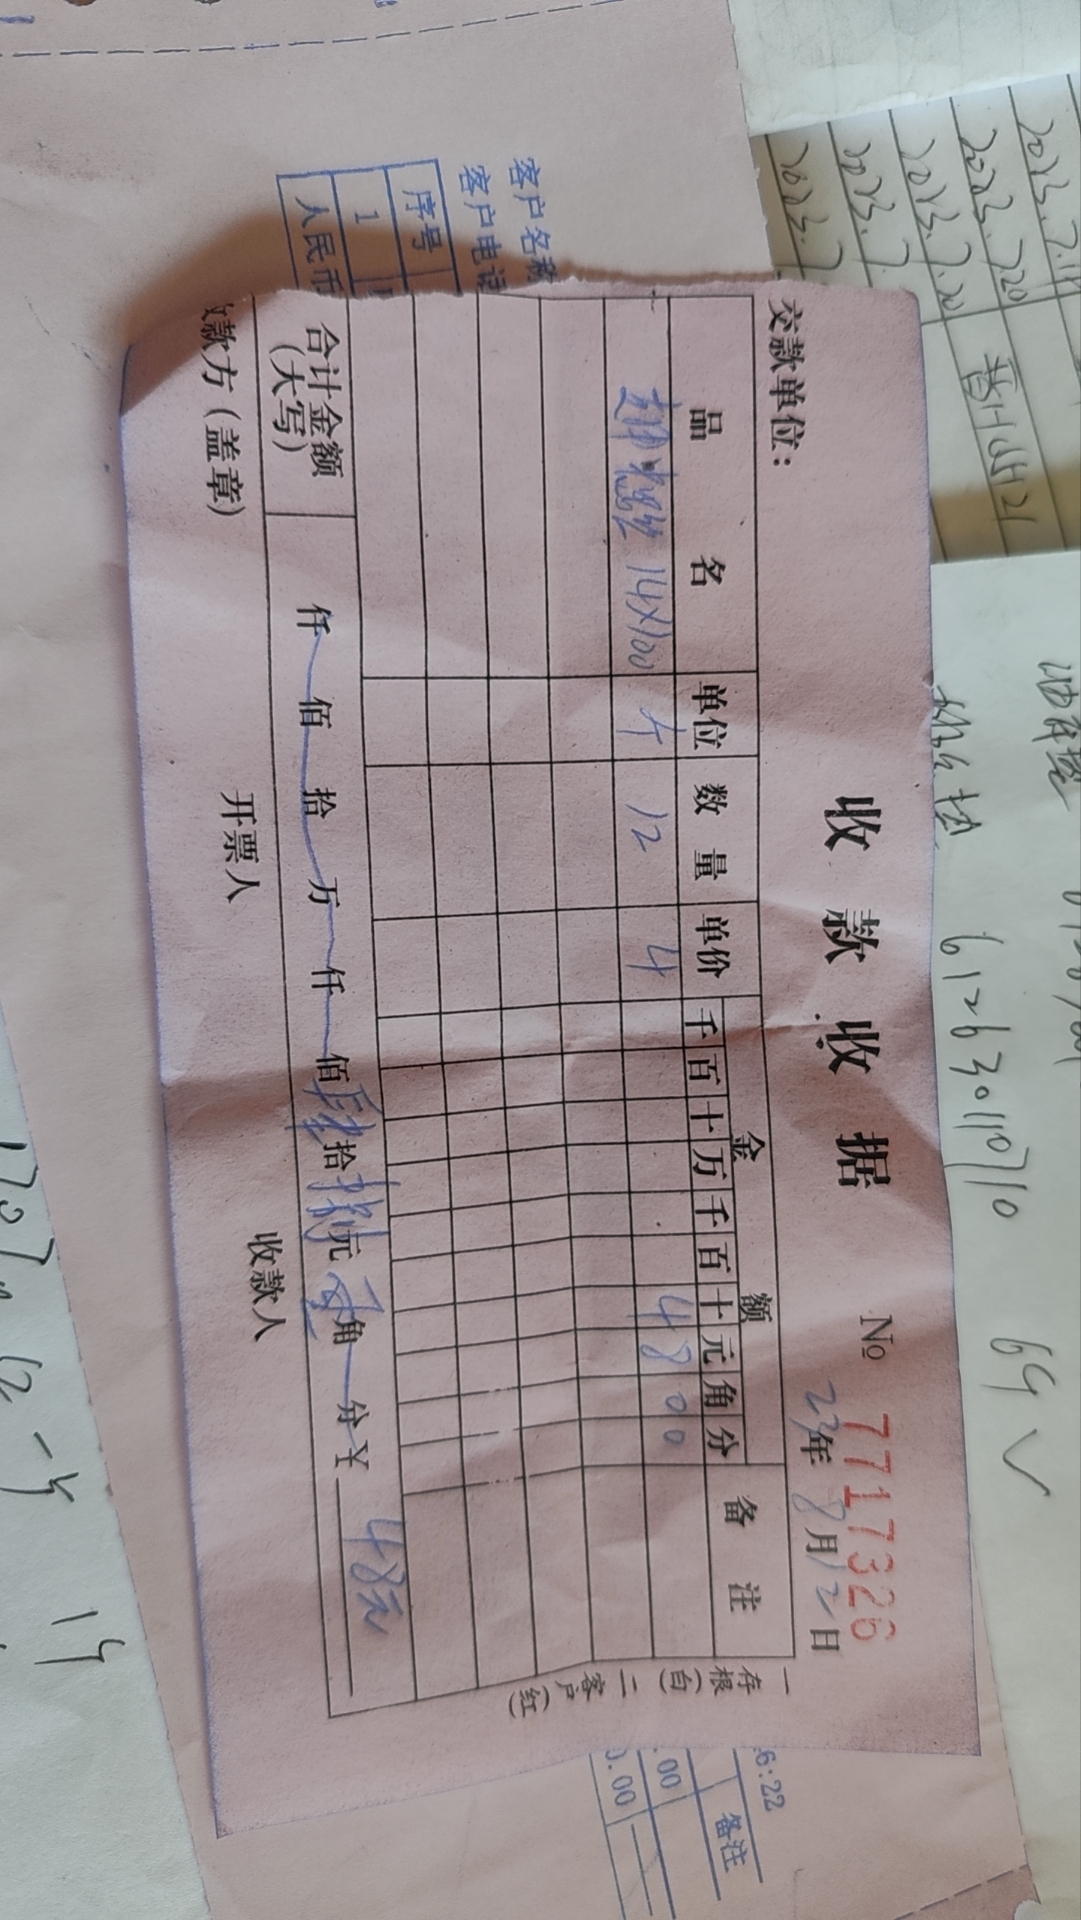 收款收据
№ 7717326
交款单位：
23年8月12日
品名 单位 数量 单价 金额 备注
千百十万千百十元角分
14×100 12 4 4800
合计金额(大写) 仟 佰 拾 万 仟 佰 肆拾捌元零角 分 ¥ 48元
收款方（盖章） 开票人 收款人
一存根(白) 二客户(红)
客户名称
客户电话
序号
1
人民币
6:22
备注
.00
0.00
2023.7.20
2023.7.20
2023.7
2023.7
612630110710 69 ✓
14